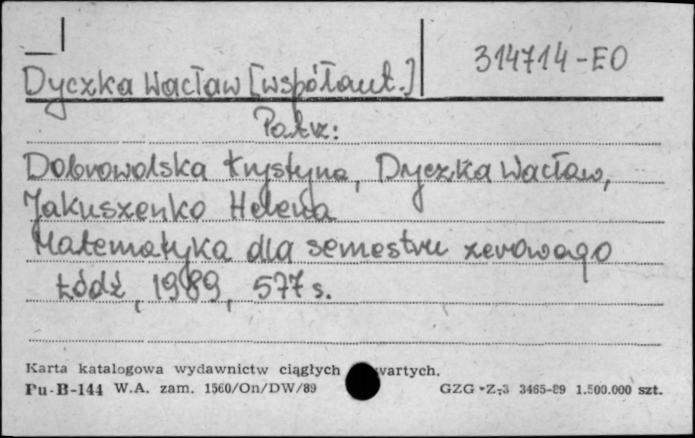 314714-EO
Dyczka Wacław [współaut.]
Patrz:
Dobrowolska Krystyna, Dyczka Wacław,
Jakuszenko Helena
Matematyka dla semestru zerowego
Łódź, 1989, 577 s.
Karta katalogowa wydawnictw ciągłych wartych.
Pu-B-144 W.A. zam. 1560/On/DW/89 GZG Z-3 3465-89 1.500.000 szt.